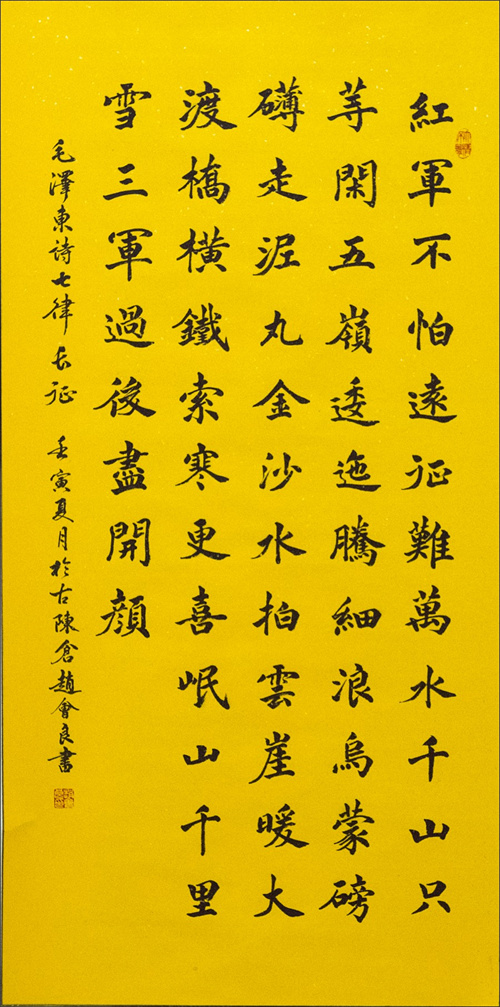 紅軍不怕遠征難萬水千山只
等閑五嶺逶迤騰細浪烏蒙磅
礴走泥丸金沙水拍雲崖暖大
渡橋橫鐵索寒更喜岷山千里
雪三軍過後盡開顏
毛澤東詩七律長征 壬寅夏月於古陳倉趙會良書